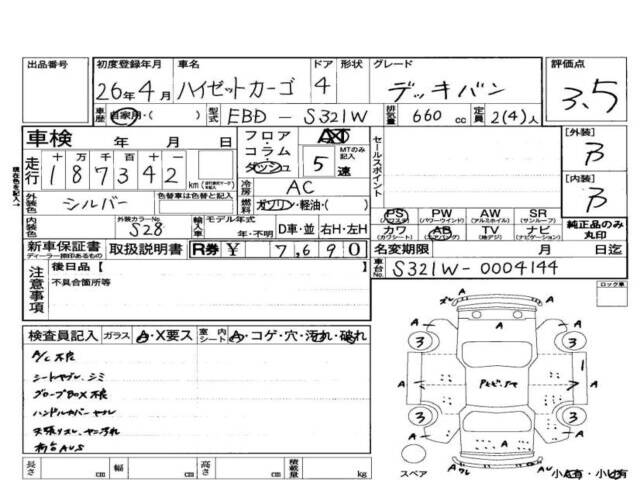 出品番号
初度登録年月
26年4月
車名
ハイゼットカーゴ
ドア
4
形状
グレード
デッキバン
評価点
3.5
車歴
自家用・( )
型式
EBD - S321W
排気量
660 cc
定員
2(4)人
車検
年 月 日
フロア・コラム・ダッシュ
MTのみ記入
5速
セールスポイント
[外装]
B
[内装]
B
走行
十 万 千 百 十 一
187342 km
冷房
AC
外装色
シルバー
色替車は色替と記入
燃料
ガソリン・軽油・( )
内装色
外装カラーNo.
S28
輸入車
モデル年式
年・不明
D車・並
右H・左H
PS
(パワステ)
PW
(パワーウインド)
AW
(アルミホイル)
SR
(サンルーフ)
カワ
(カワシート)
AB
(エアバッグ)
TV
(地デジ)
ナビ
(ナビゲーション)
純正品のみ丸印
新車保証書
ディーラー捺印あるもの
取扱説明書
R券 ¥ 7,690
名変期限 月 日迄
車台No.
S321W-0004144
注意事項
後日品[ ]
不具合箇所等
ロック車
検査員記入
ガラス
A・X要ス
室内シート
A・コゲ・穴・汚れ・破れ
A/C不良
グローブBOX不良
A
3
3
3
3
1
スペア
長さ cm
幅 cm
高さ cm
積載量 kg